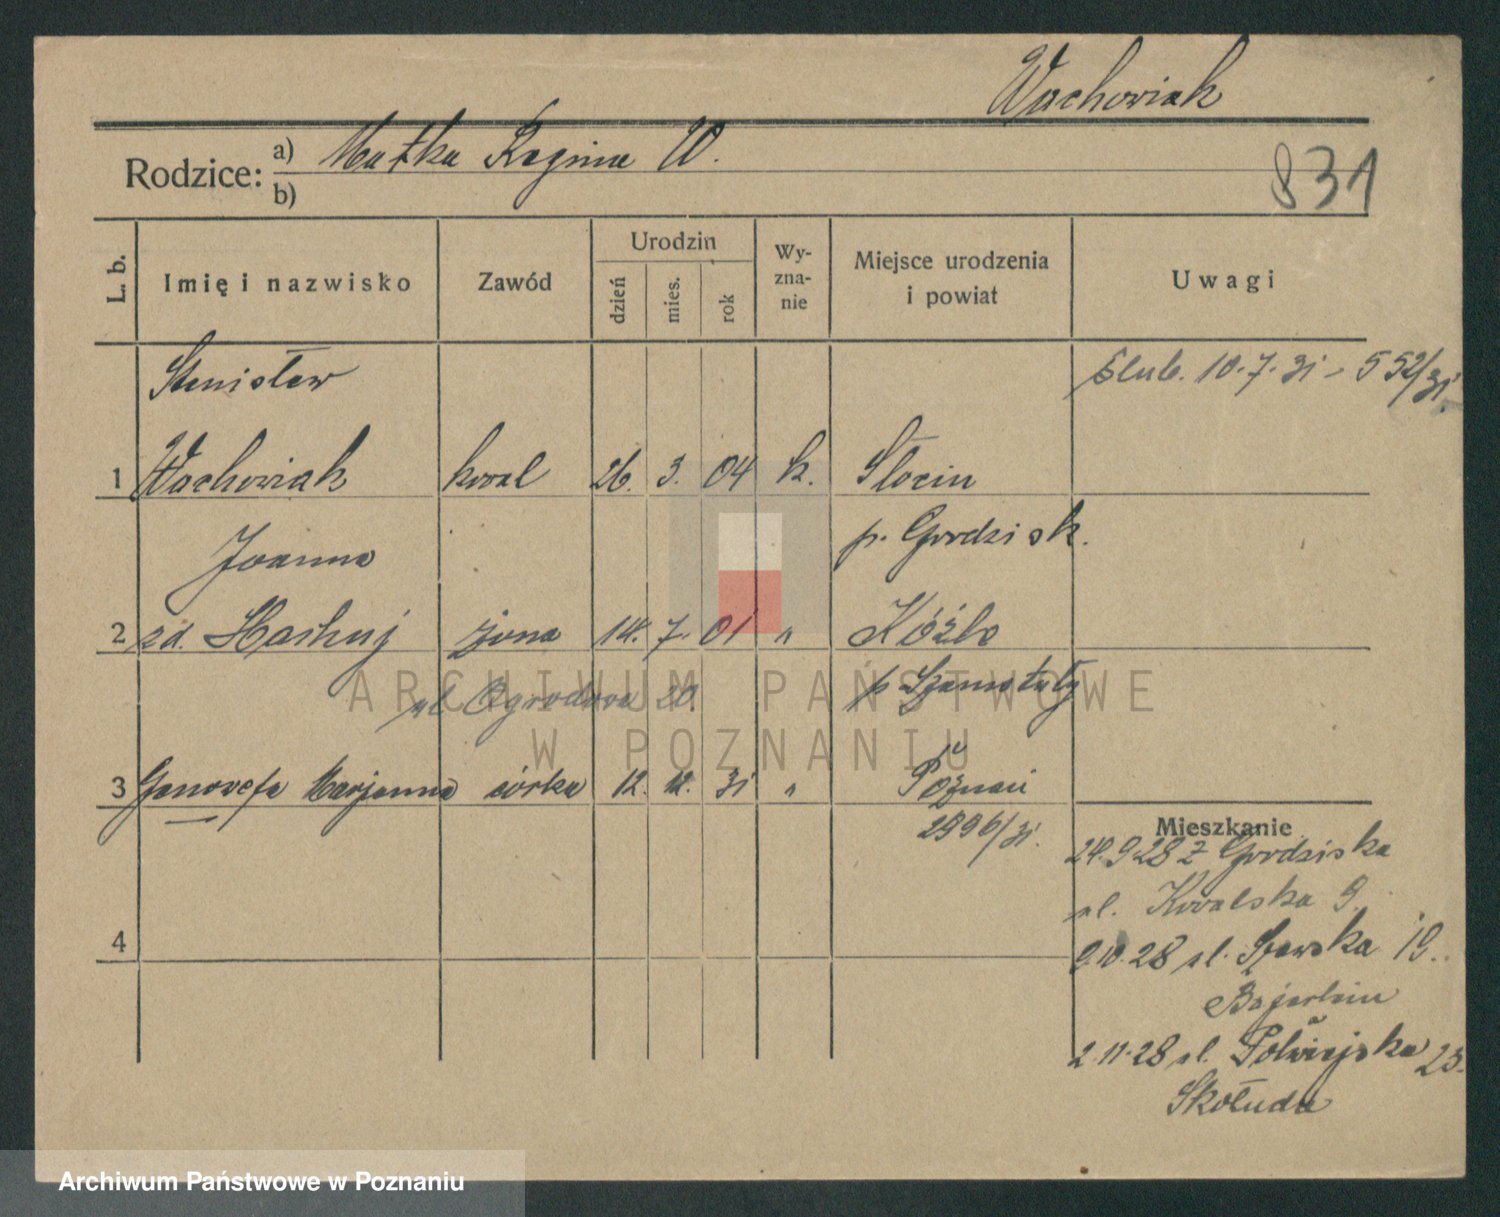 Wachowiak
Rodzice: a) Matka Regina W.
b)
831
L. b. Imię i nazwisko Zawód Urodzin dzień mies. rok Wy-zna-nie Miejsce urodzenia i powiat Uwagi
Stanisław Ślub. 10.7.31 - 552/31
1 Wachowiak kowal 26. 3. 04 k. Słocin
p. Grodzisk.
Joanna
2 zd. żona 14. 7. 01 " Koźle
p Szamotuły
ul Ogrodowa 20.
3 Genowefa Marjanna córka 12. 12. 31 " Poznań
2996/31.
4
Mieszkanie
24.9.28 z Grodziska
ul. Kowalska 9.
9.10.28 ul. Szewska 19..
2.11.28 ul. Półwiejska 23.
Skołuda
ARCHIWUM PAŃSTWOWE
W POZNANIU
Archiwum Państwowe w Poznaniu